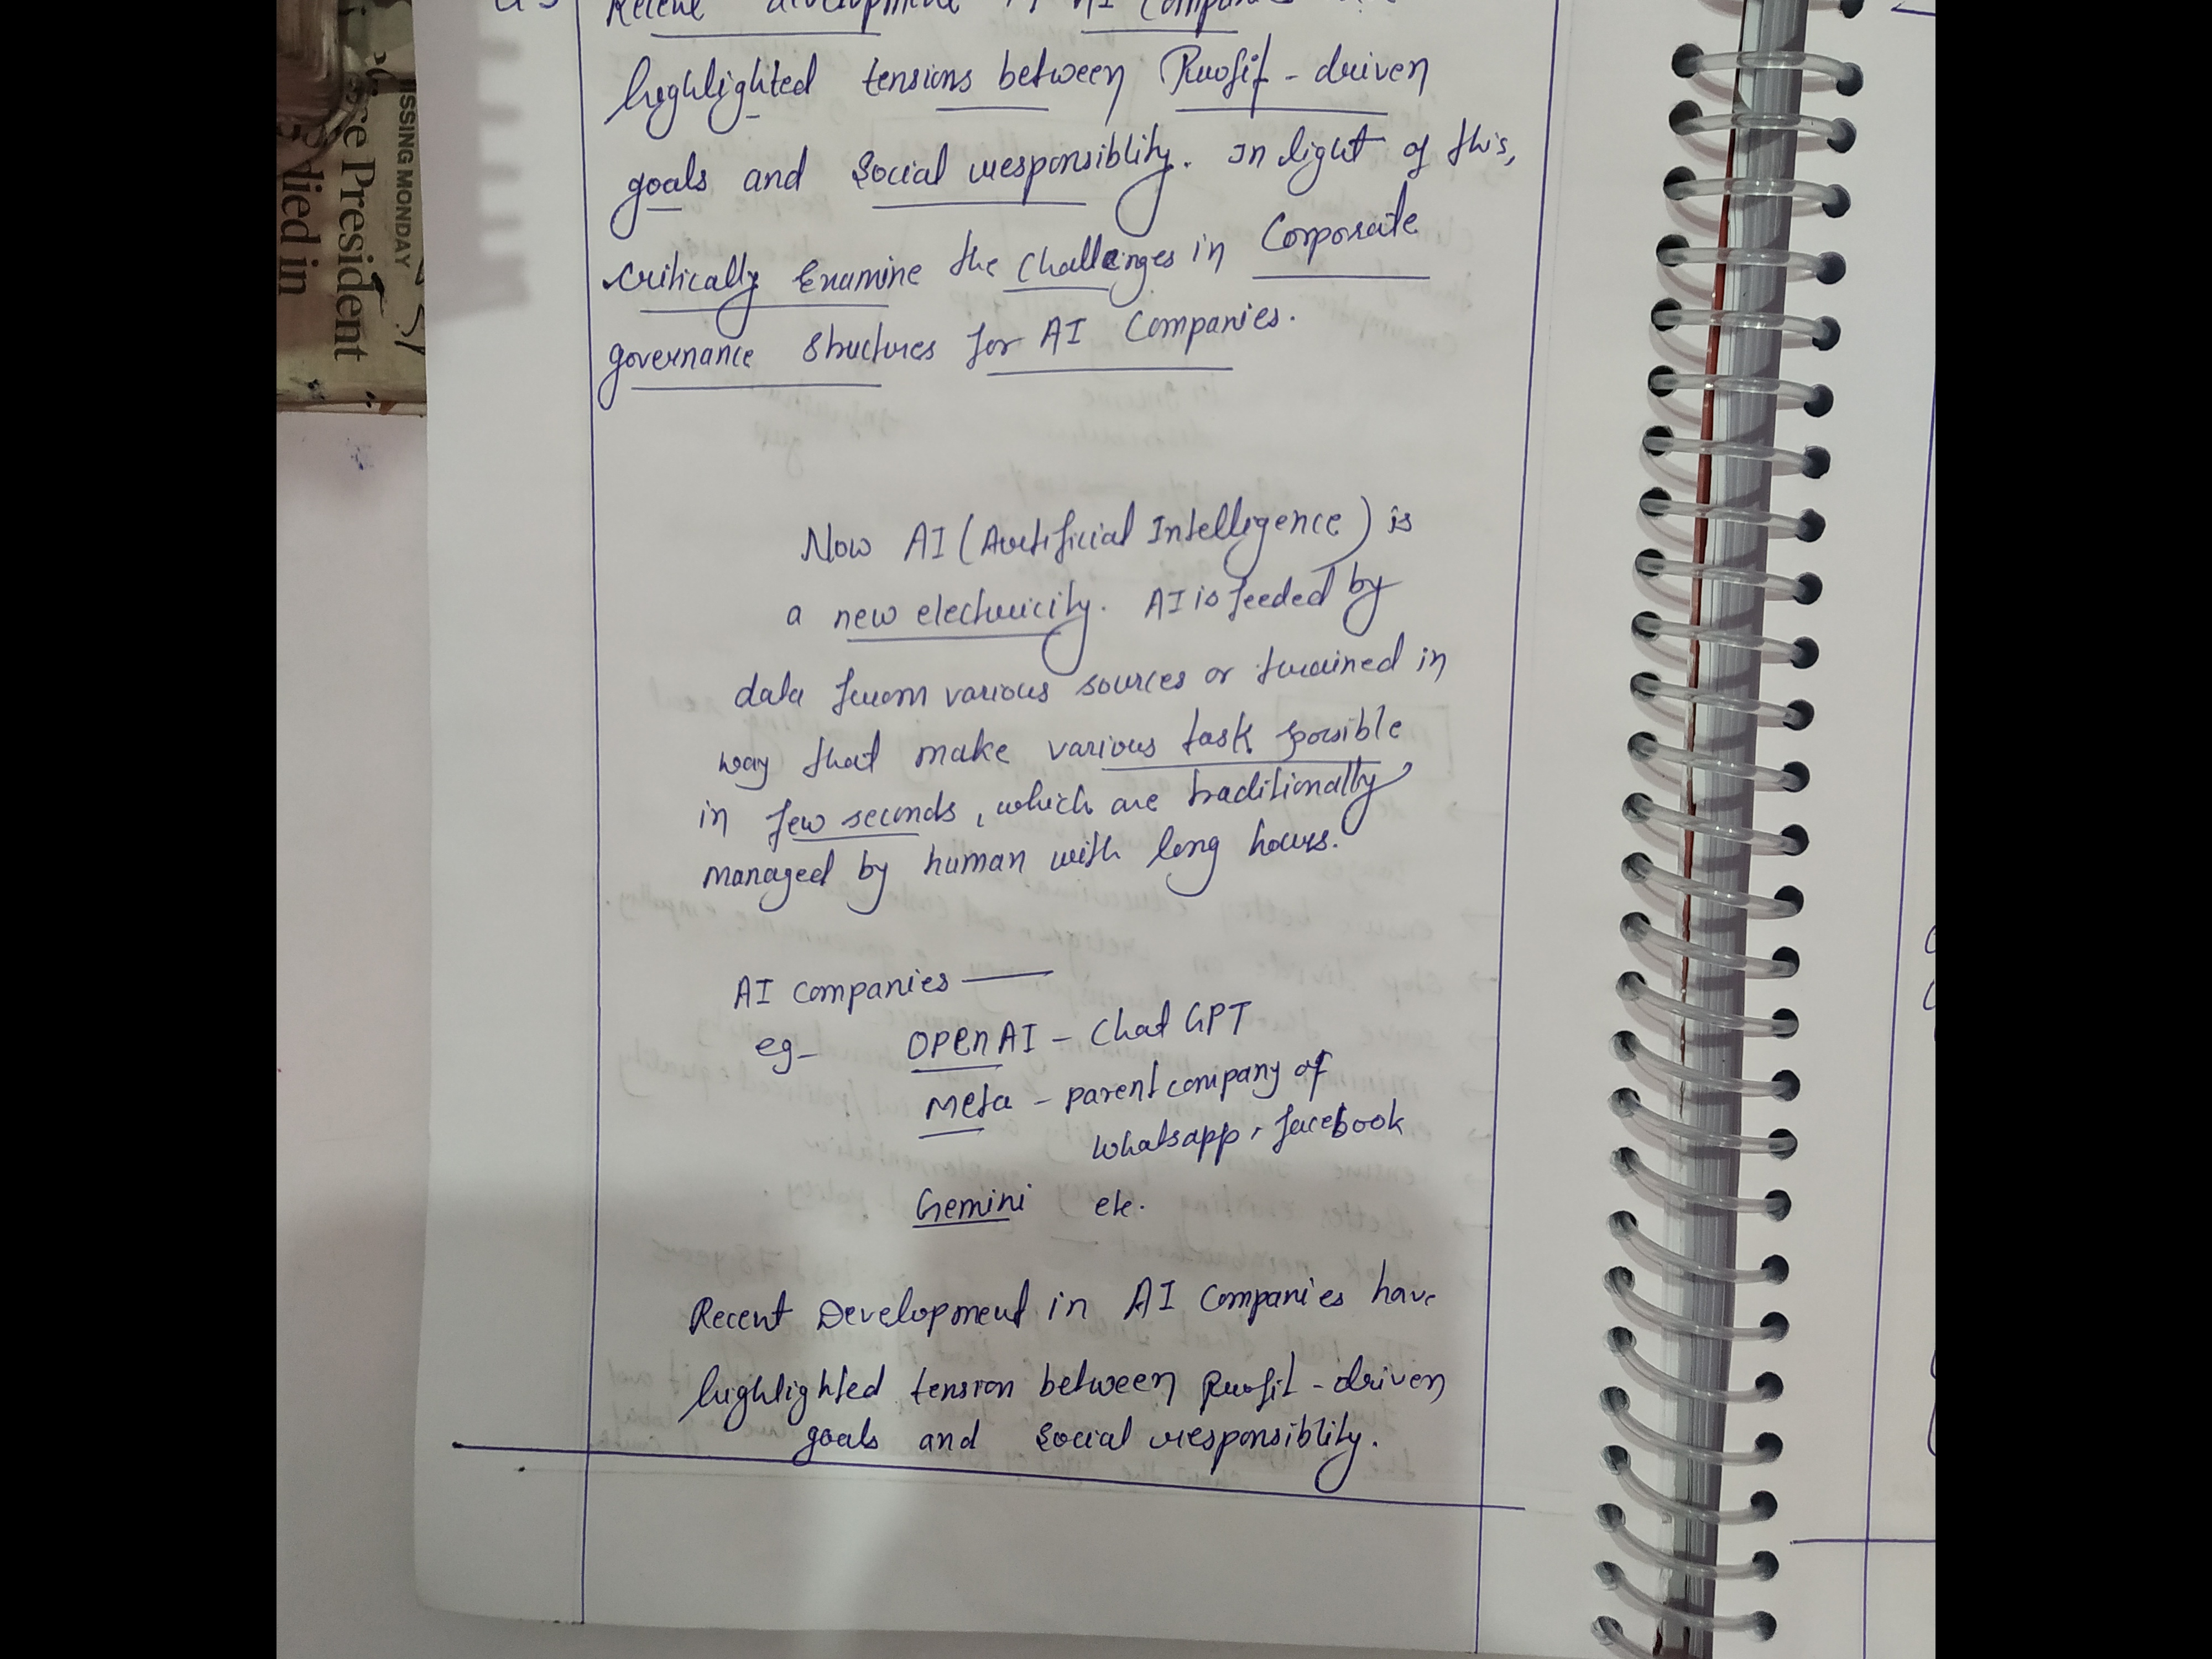 Recent development in AI Companies
highlighted tensions between Profit - driven
goals and Social responsiblity. In light of this,
critically Examine the Challenges in Corporate
governance structures for AI Companies.
Now AI (Artificial Intelligence) is
a new electricity. AI is feeded by
data from various sources or trained in
way that make various task possible
in few seconds, which are traditionally
managed by human with long hours.
AI companies —
eg- OPEN AI - Chat GPT
Meta - parent company of
Whatsapp, facebook
Gemini etc.
Recent Development in AI Companies have
highlighted tension between profit - driven
goals and social responsiblity.
ISSING MONDAY
re President
lied in